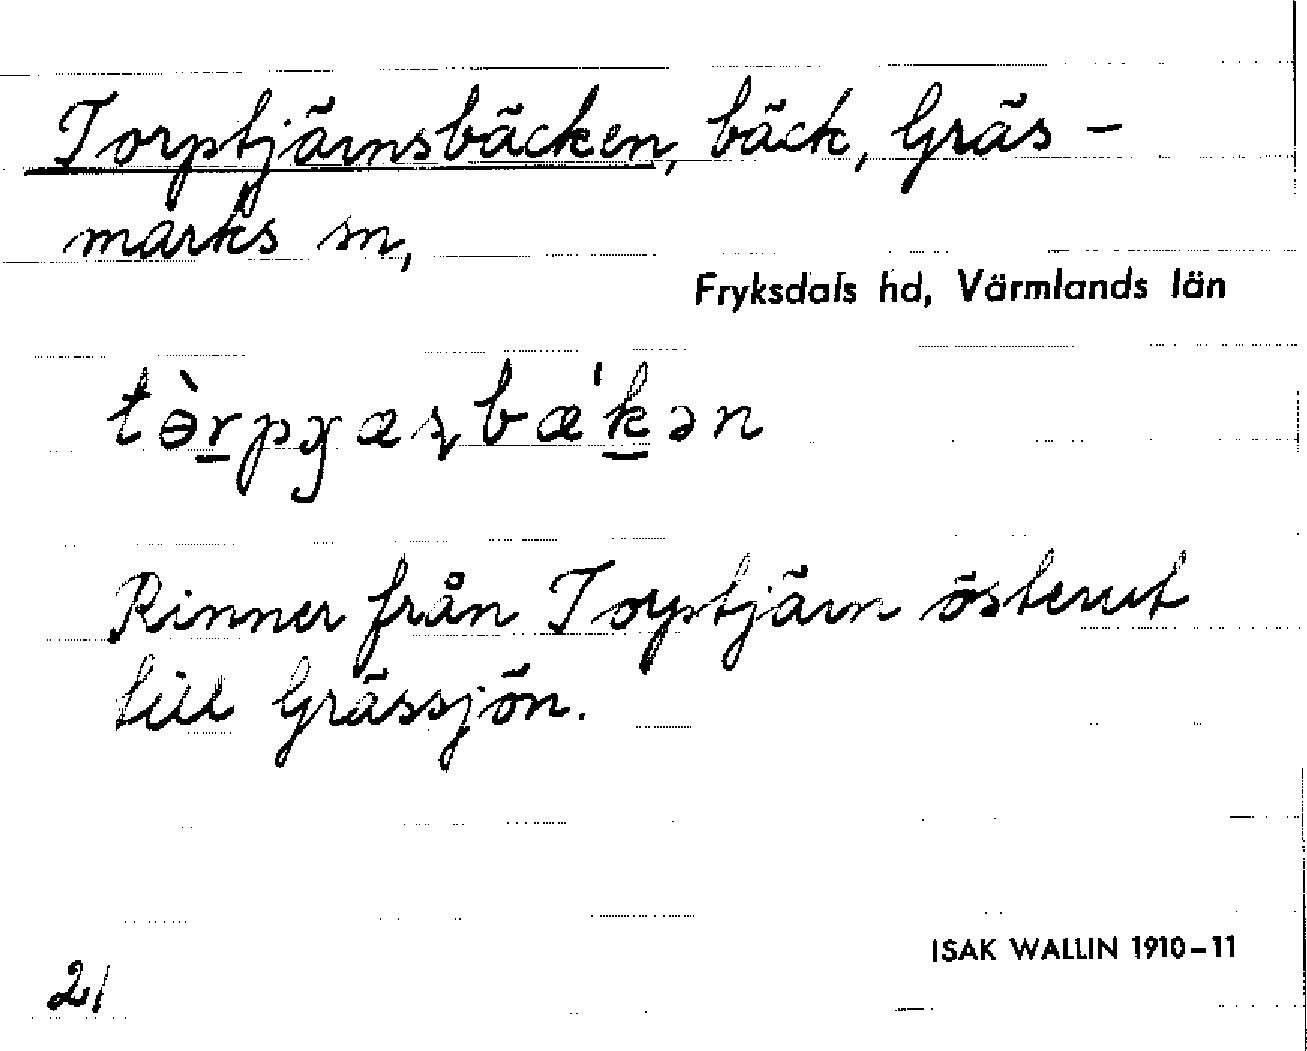 Torptjärnsbäcken, bäck, Gräs-
marks sn,
Fryksdals hd, Värmlands län
Rinner från Torptjärn österut
till Gräsjön.
ISAK WALLIN 1910-11
21